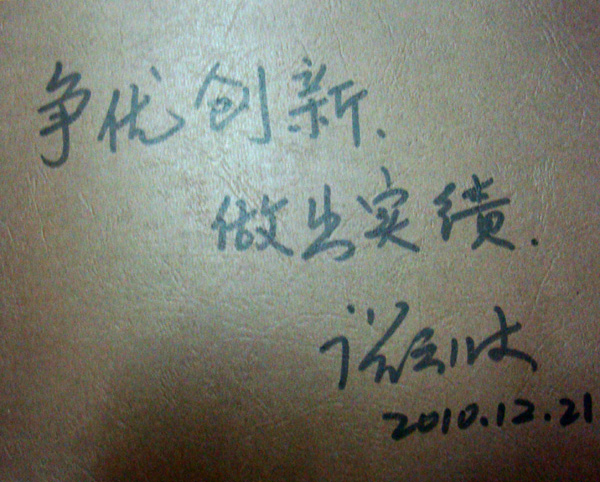 争优创新、
做出实绩.
2010.12.21